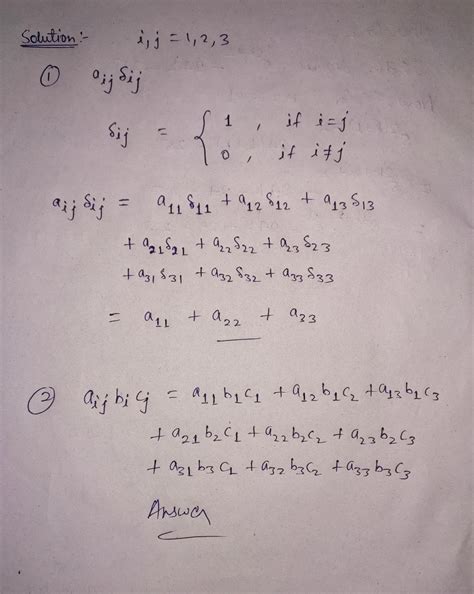 Solution:- i, j = 1, 2, 3
① aij δij
δij = { 1 , if i=j
0 , if i≠j
aij δij = a11 δ11 + a12 δ12 + a13 δ13
+ a21 δ21 + a22 δ22 + a23 δ23
+ a31 δ31 + a32 δ32 + a33 δ33
= a11 + a22 + a33
② aij bi cj = a11 b1 c1 + a12 b1 c2 + a13 b1 c3
+ a21 b2 c1 + a22 b2 c2 + a23 b2 c3
+ a31 b3 c1 + a32 b3 c2 + a33 b3 c3
Answer